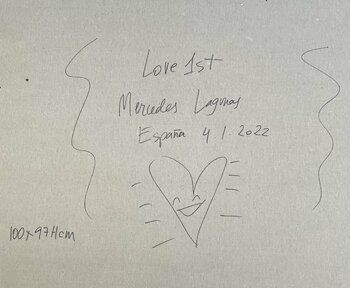 Love 1st
Mercedes Lagunas
España 4 1. 2022
100x97Hcm